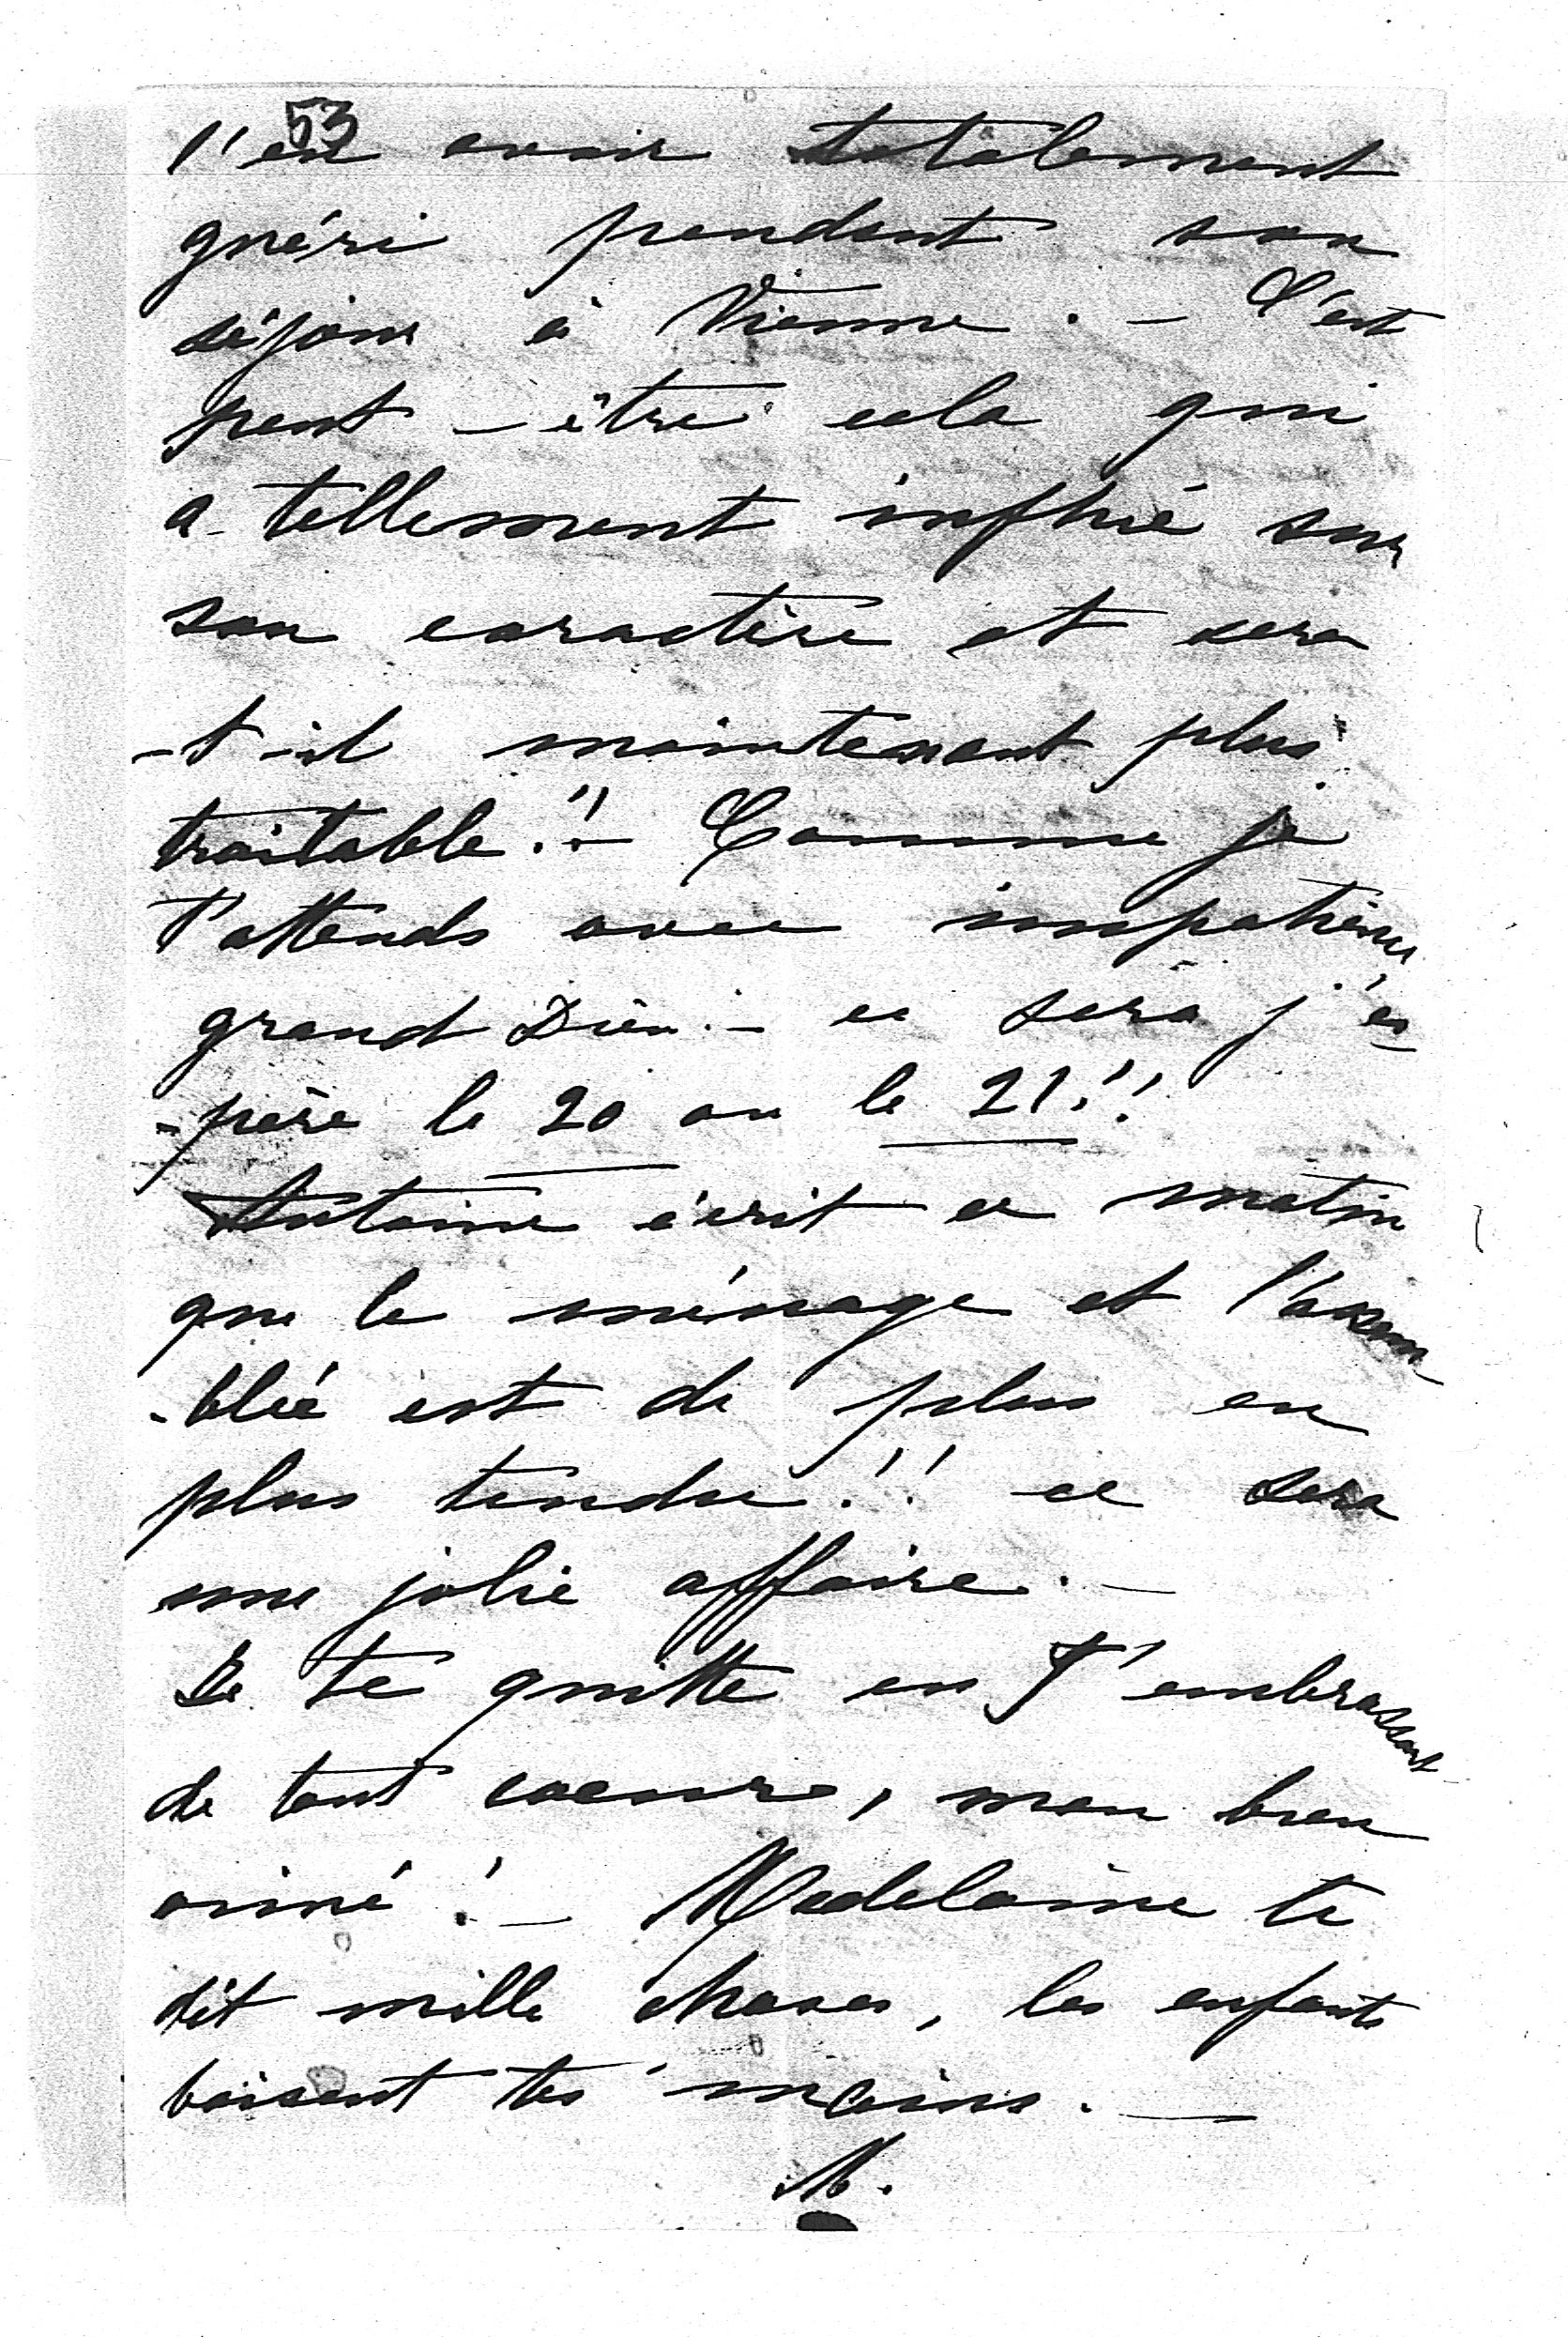 53
l'en avoir totalement
guéri pendant son
séjour à Vienne. – C'est
peut-être cela qui
a tellement influé sur
son caractère et sera
-t-il maintenant plus
traitable!! – Comme je
t'attends avec impatience
grand Dieu. – ce sera j'es-
-père le 20 ou le 21.!!
Antoine écrit ce matin
que le ménage et l'assem
-blée est de plus en
plus tendu!! ce sera
une jolie affaire. –
Je te quitte en T'embrassant
de tout coeur, mon bien
aimé! – Madelaine te
dit mille choses, les enfants
baisent tes mains. –
M.